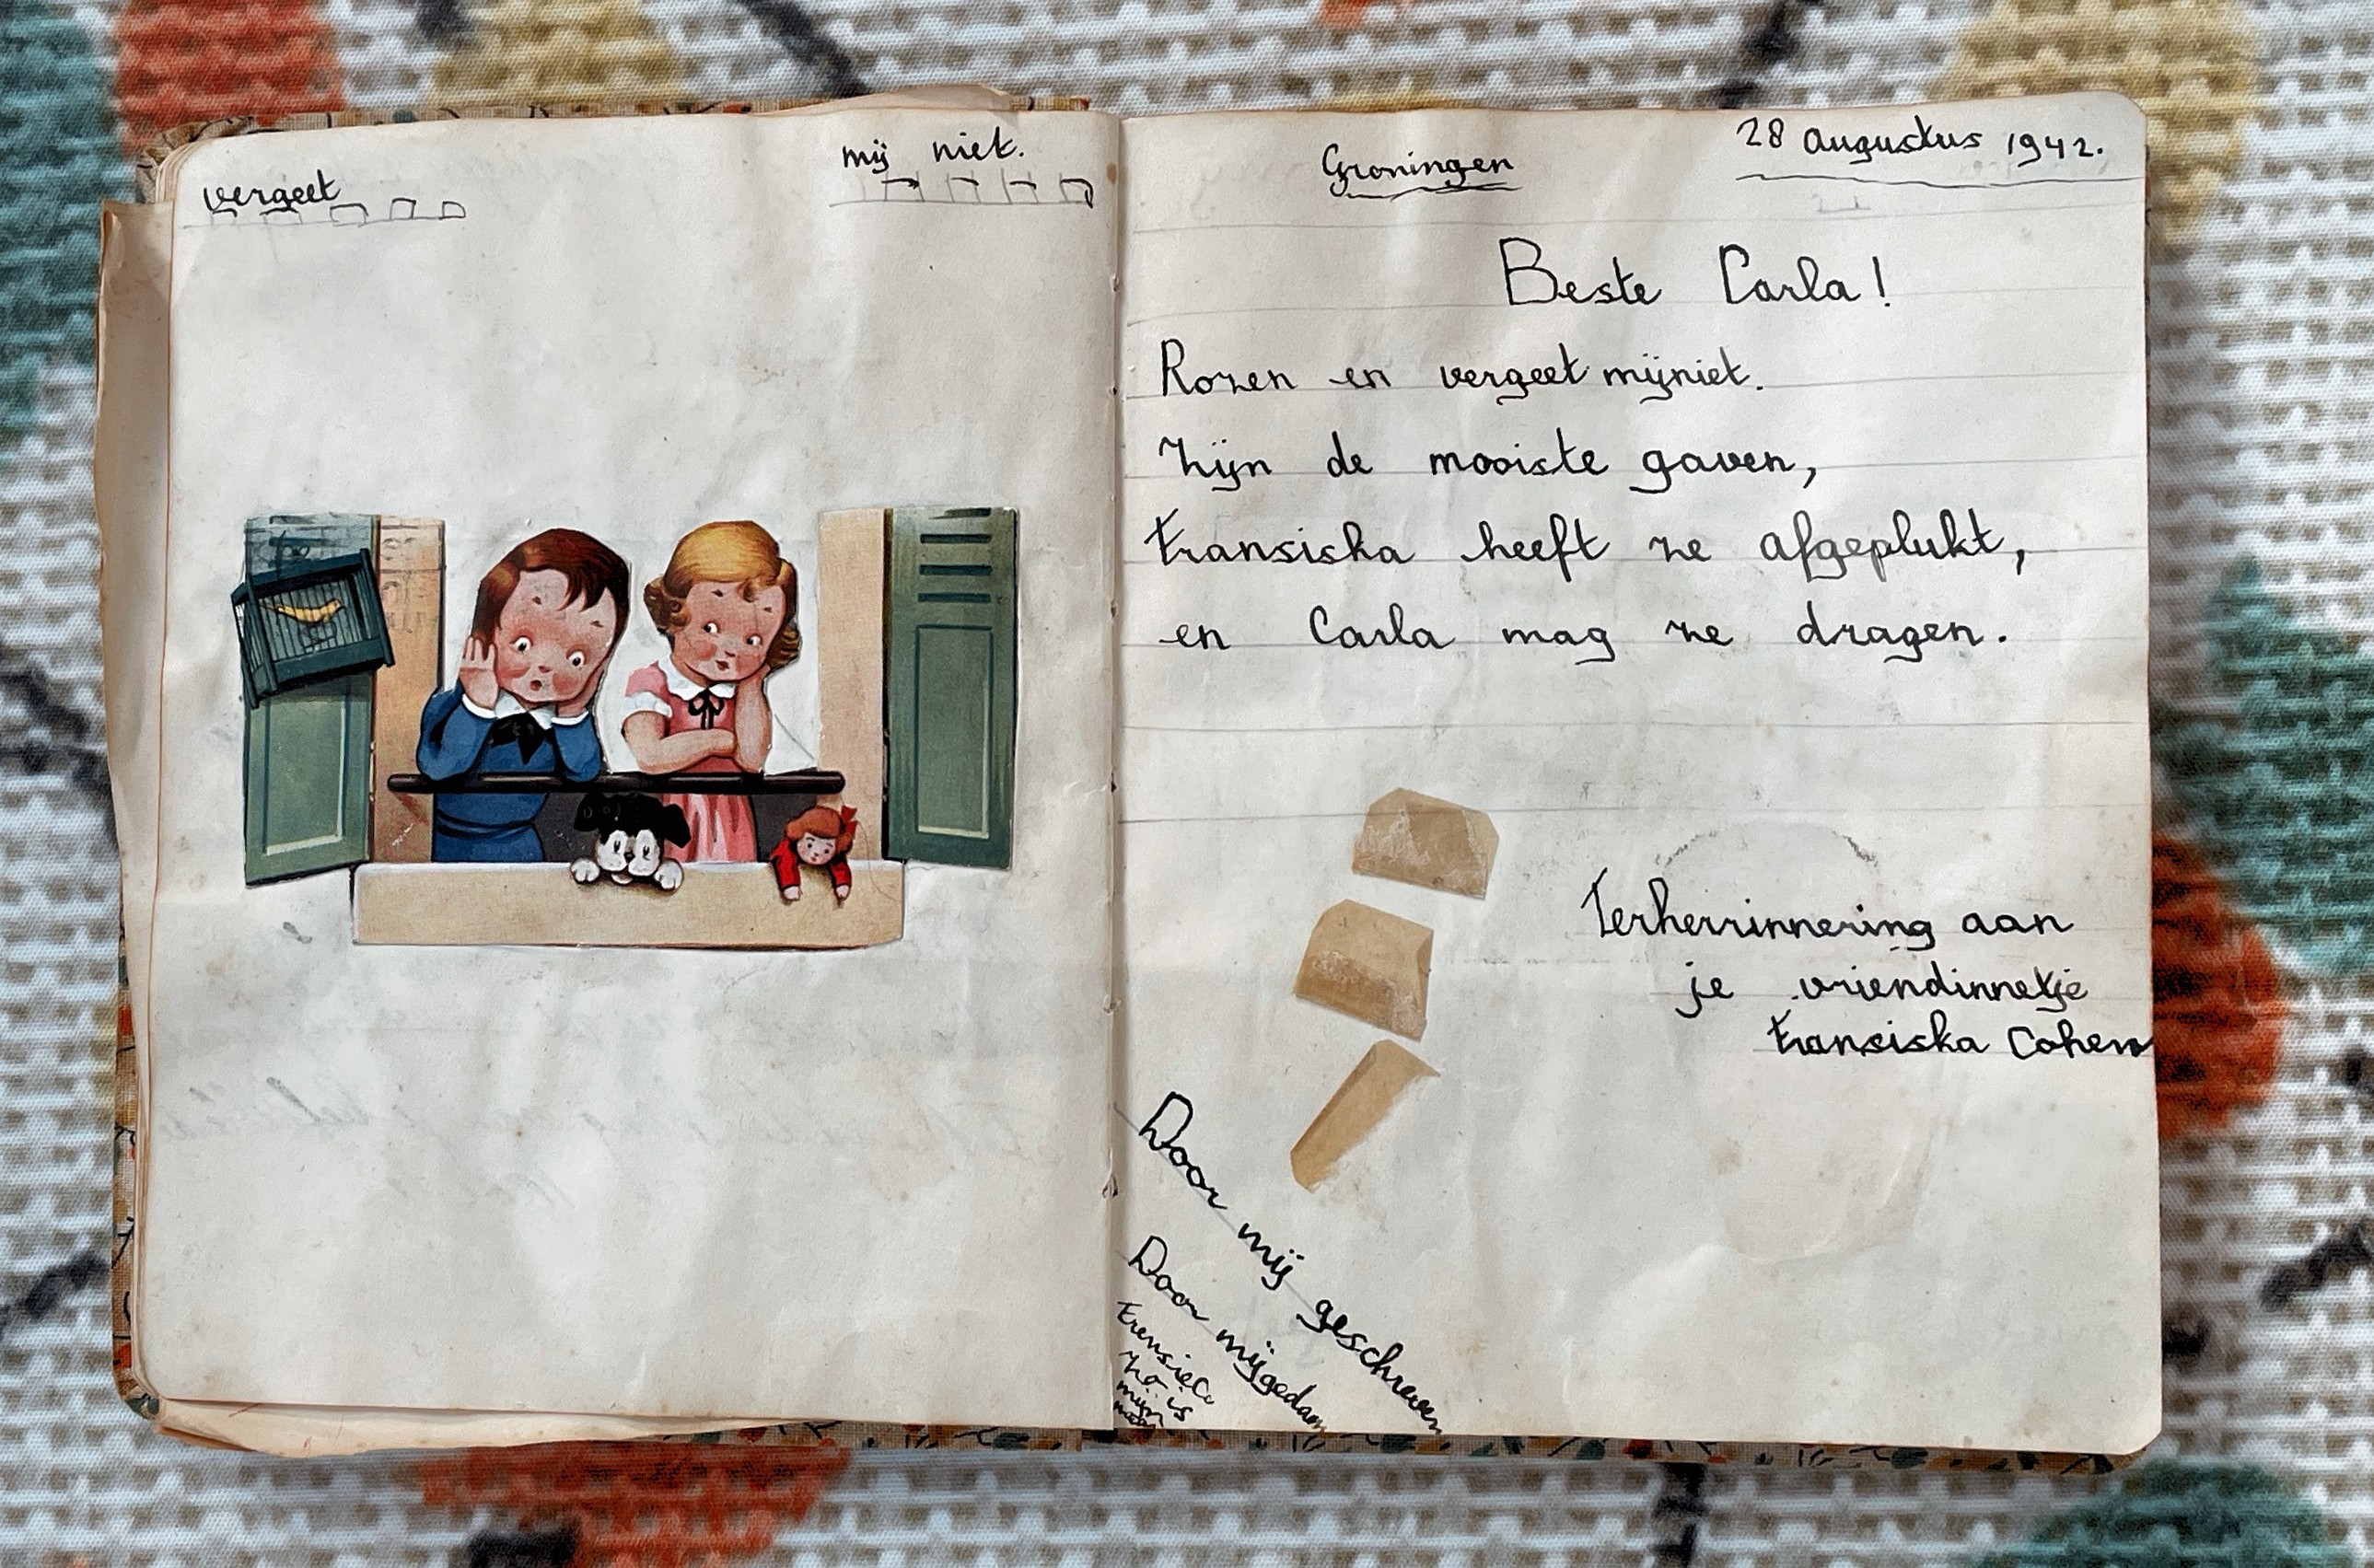 vergeet
mij niet.
Groningen
28 Augustus 1942.
Beste Carla!
Rozen en vergeet mijniet.
Zijn de mooiste gaven,
Fransiska heeft ze afgeplukt,
en Carla mag ze dragen.
Terherrinnering aan
je vriendinnetje
Fransiska Cohen
Door mij geschreven
Door mij gedaan
is
mijn